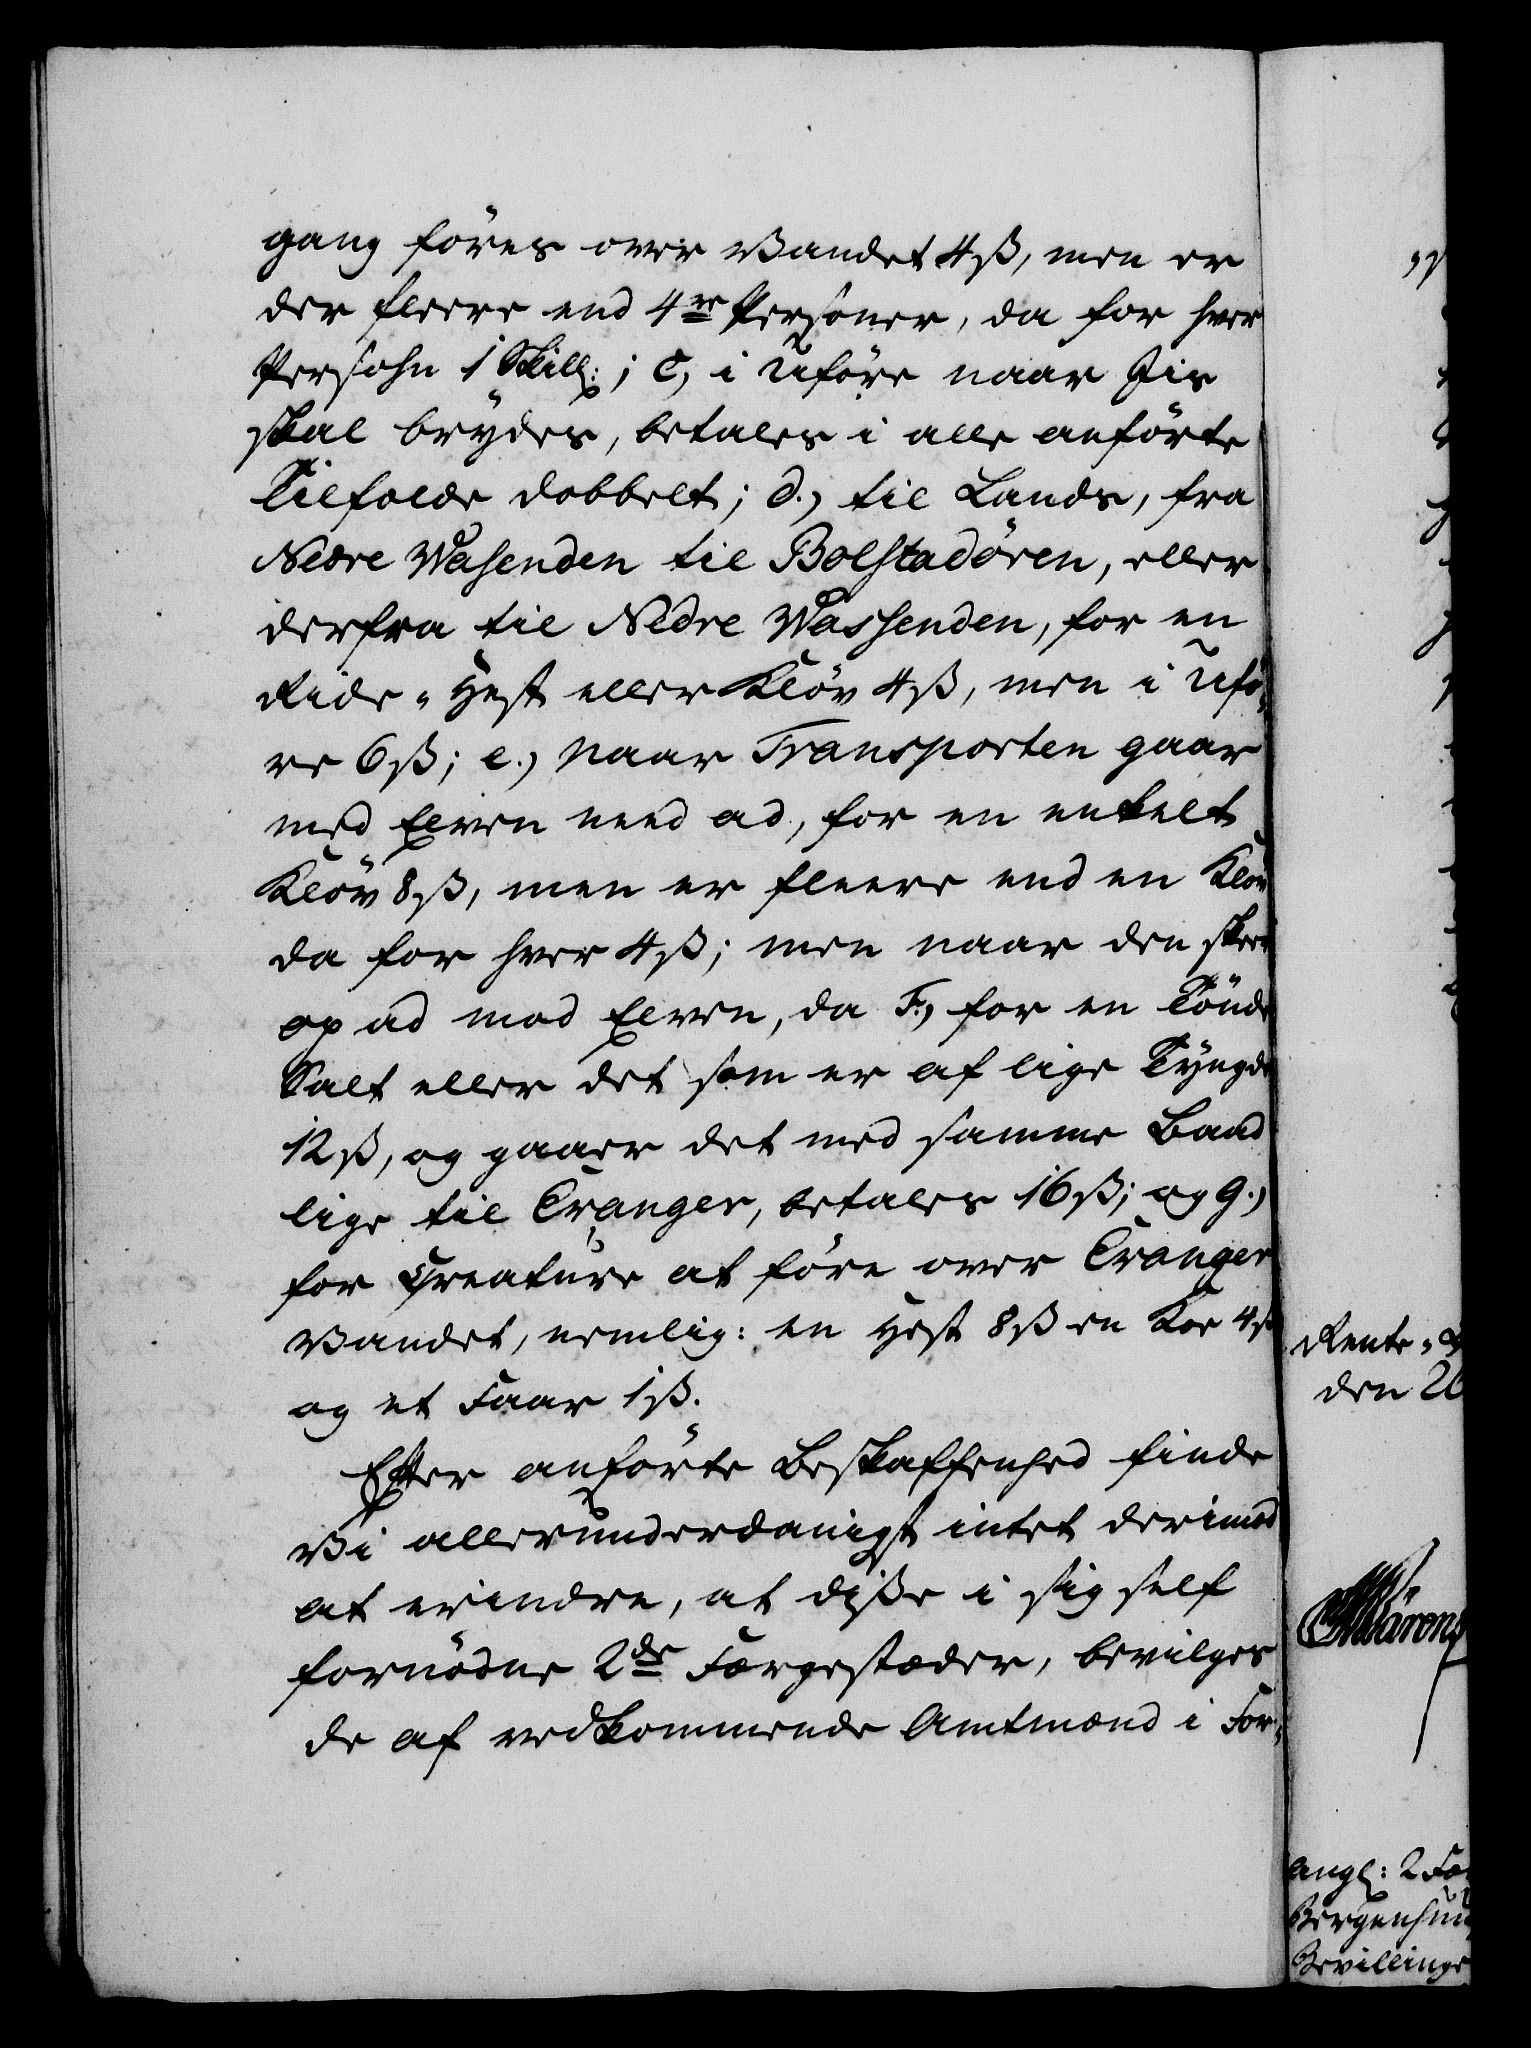 gang föres over Vandet 4 ß, men er
der fleere end 4re Personer, da for hver
Persohn 1 Skill:; C, i Uföre naar Jis
skal brydes, betales i alle anförte
Tilfælde dobbelt; d., til Lands, fra
Nedre Wasenden til Bolstadören, eller
derfra til Nedre Wassenden, for en
Ride-Hest eller Klöv 4 ß, men i Ufö-
re 6 ß; e., naar Transporten gaar
med Elven need ad, for en enkelt
Klöv 8 ß, men er fleere end en Klöv
da for hver 4 ß; men naar den skeer
op ad mod Elven, da F., for en Tönde
Salt eller det som er af lige Tyngde
12 ß, og gaaer det med samme Baad
lige til Evanger, betales 16 ß; og g.,
for Creature at före over Evanger
Vandet, nemlig: en Hest 8 ß en Koe 4 ß
og et Faar 1 ß.
Efter anförte Beskaffenhed finde
Vi allerunderdanigst intet derimod
at erindre, at diße i sig self
fornödne 2de Færgestæder, bevilges
de af vedkommende Amtmænd i For-
Rente-
den 26
angl: 2 Fæ
Bergenhuu
Bevillinge